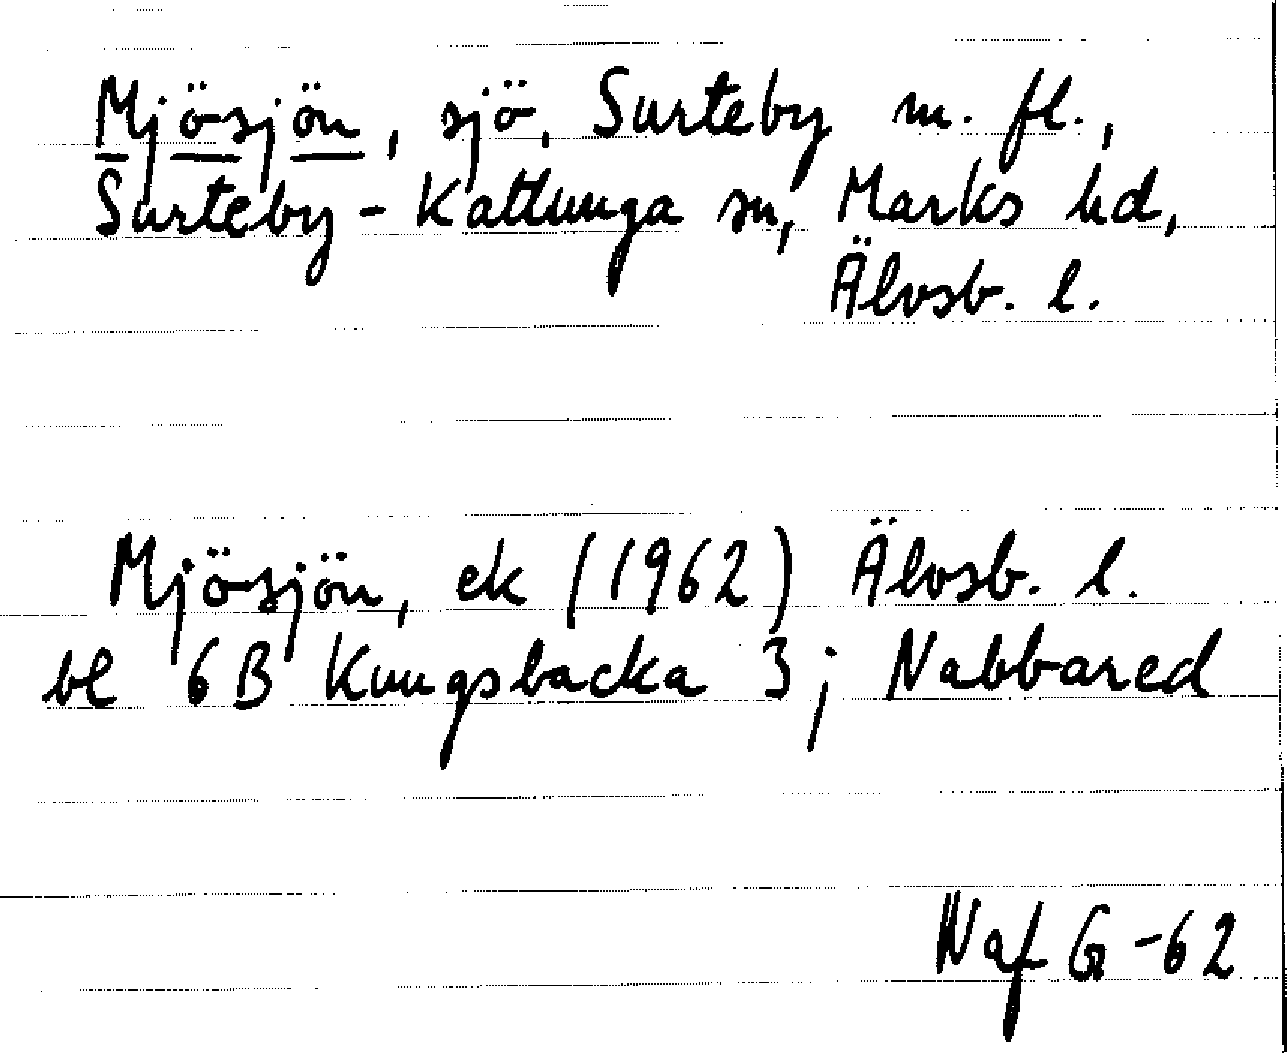 Mjösjön, sjö, Surteby m. fl.,
Surteby-Kattunga sn, Marks hd,
Älvsb. l.
Mjösjön, ek (1962) Älvsb. l.
bl 6B Kungsbacka 3; Nabbared
Naf G-62